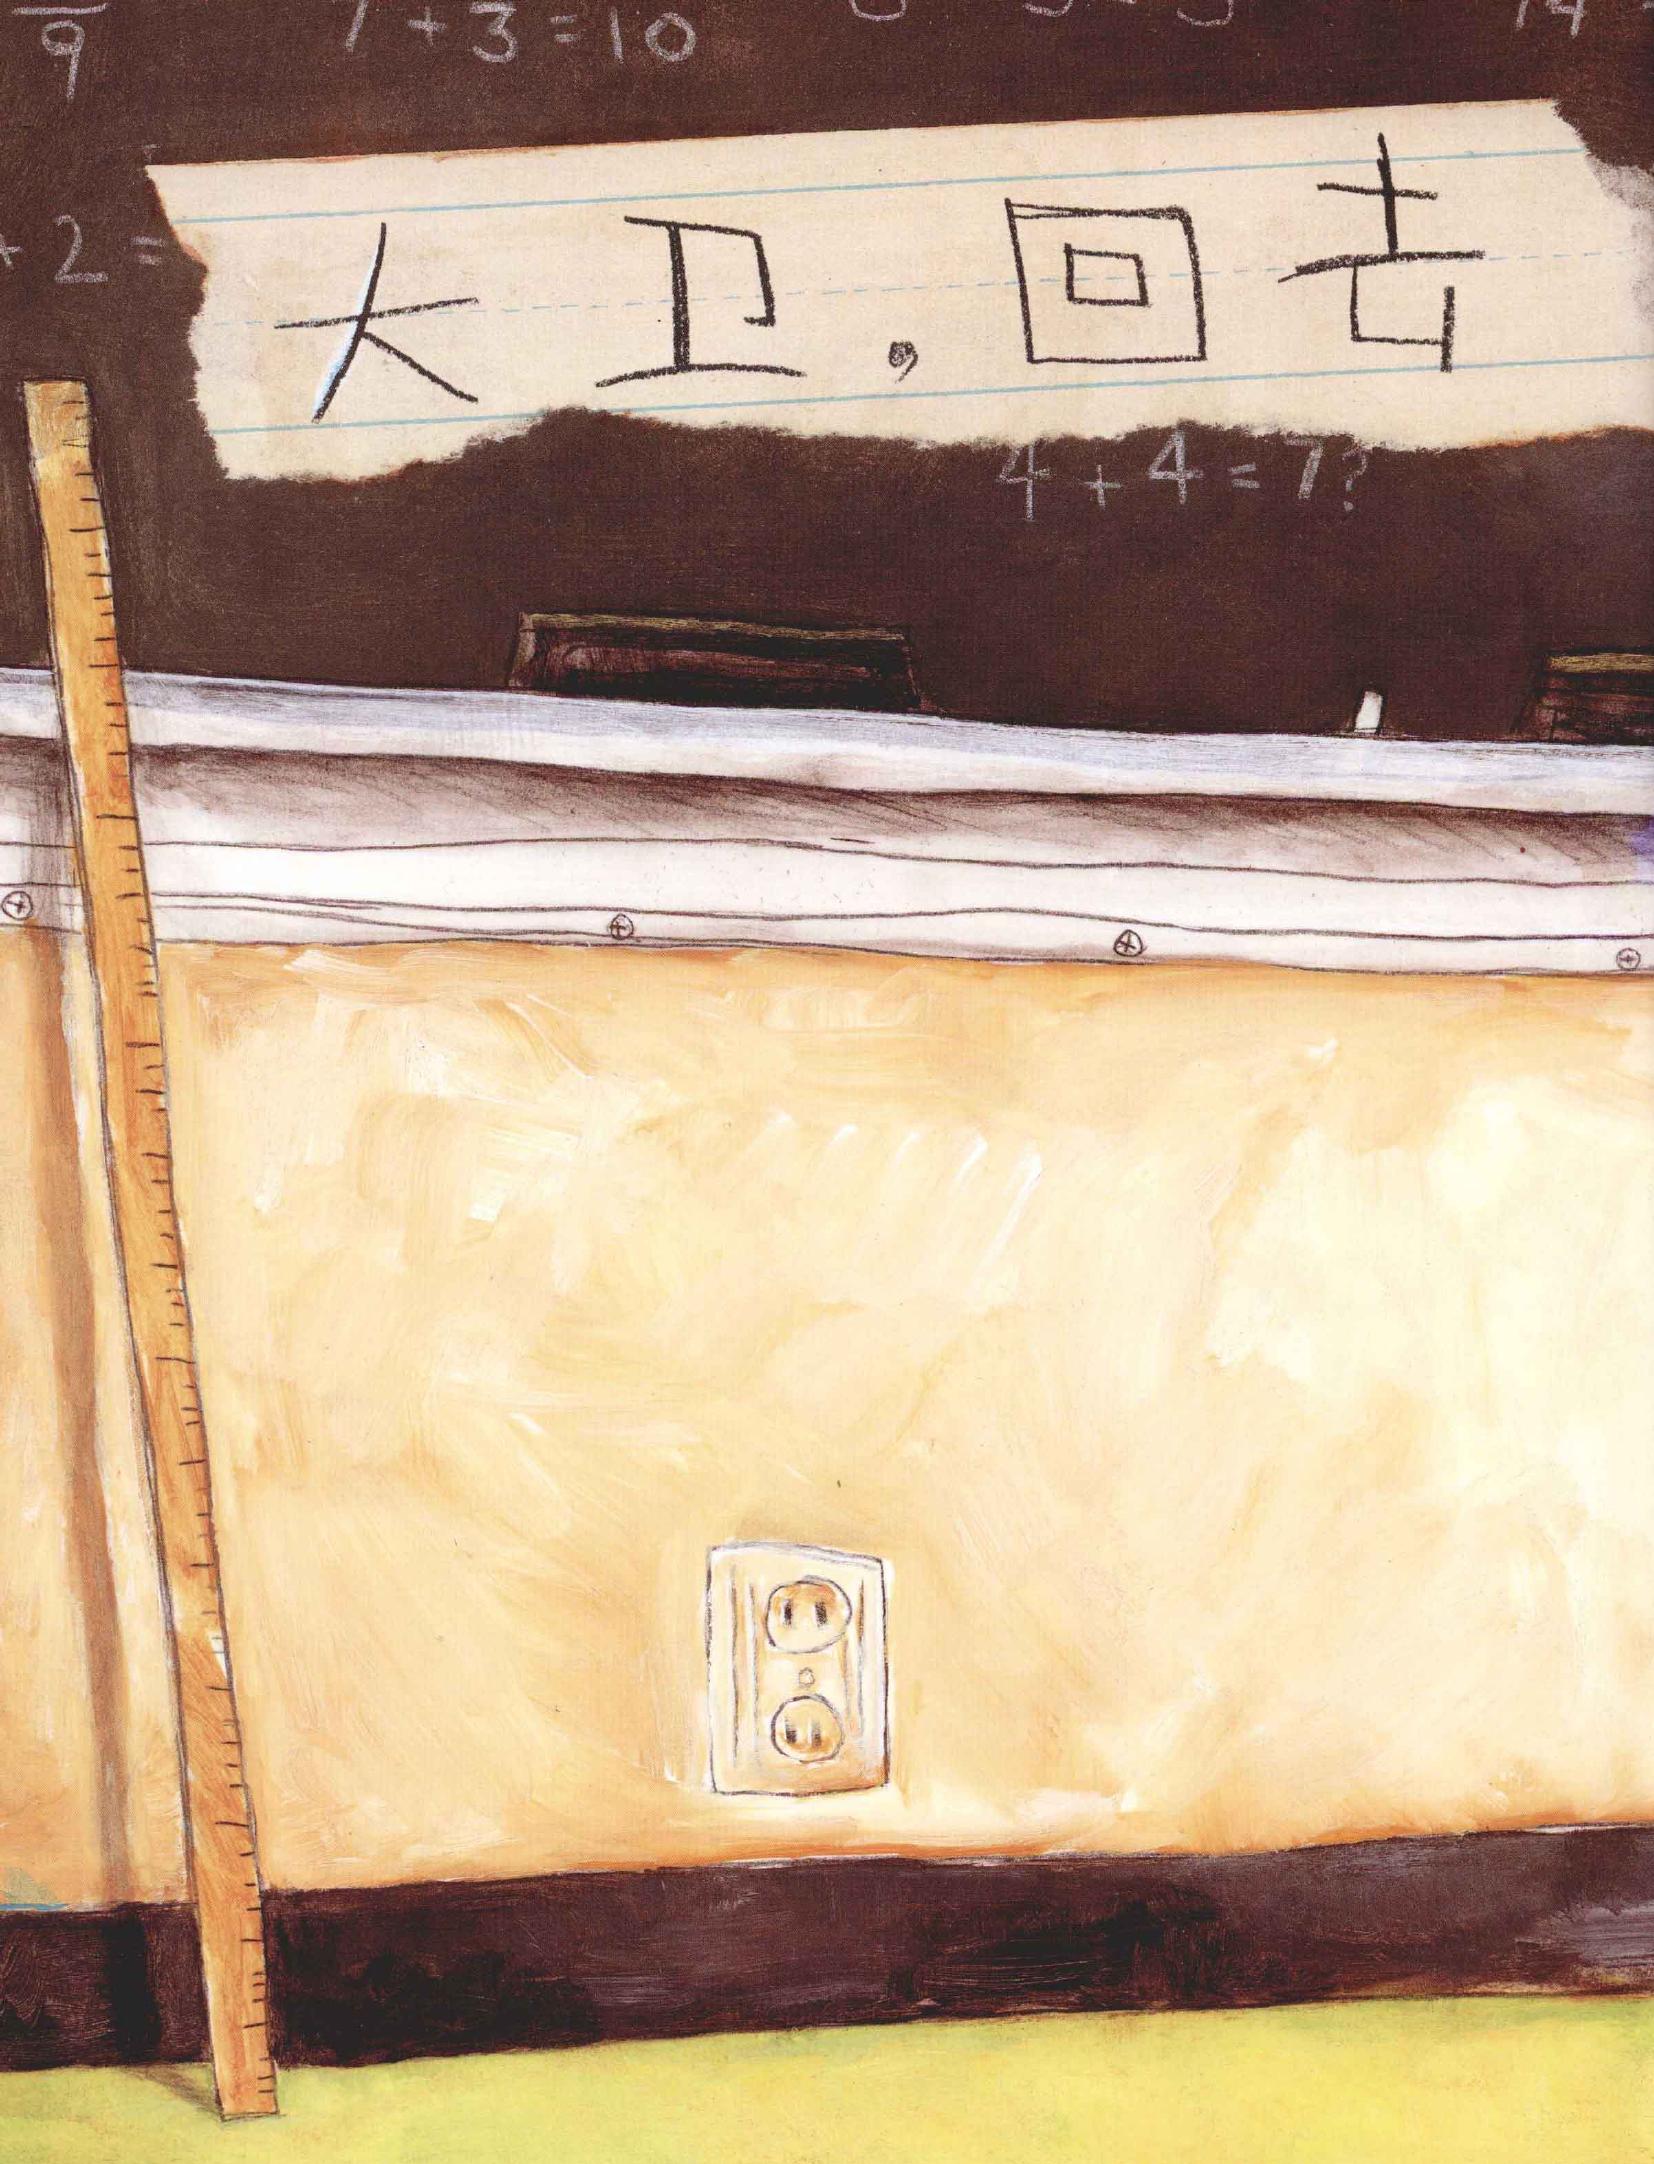 9
7 + 3 = 10
+ 2 =
大卫,回去
4 + 4 = 7?